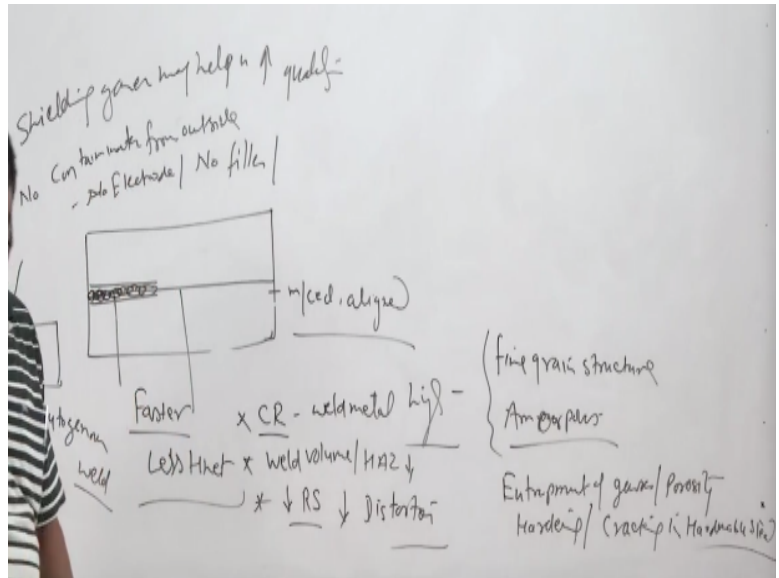 Shielding gases may help in ↑ quality
No Contaminates from outside
- No Electrode / No filler /
m/ced. aligned
Faster
* CR - weld metal high -
fine grain structure
Amorphous
Autogenous
weld
Less Hnet * weld volume / HAZ ↓
* ↓ RS ↓ Distortion
Entrapment of gases / Porosity
Hardening / Cracking in Hardenable Steel